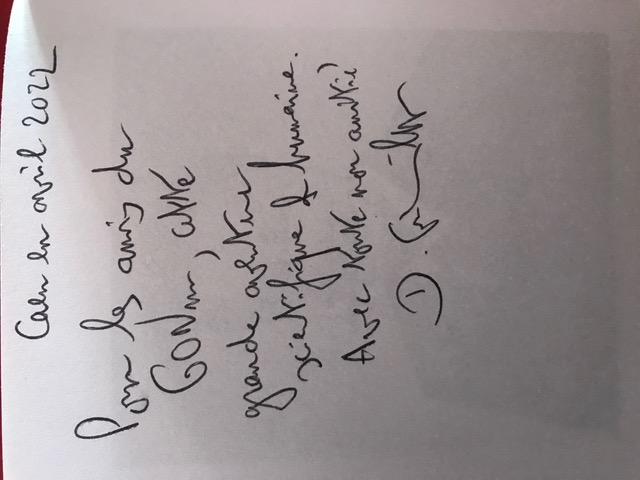 Caen en avril 2022
Pour les amis du
GONm, cette
grande aventure
scientifique & humaine.
Avec toute mon amitié
D.